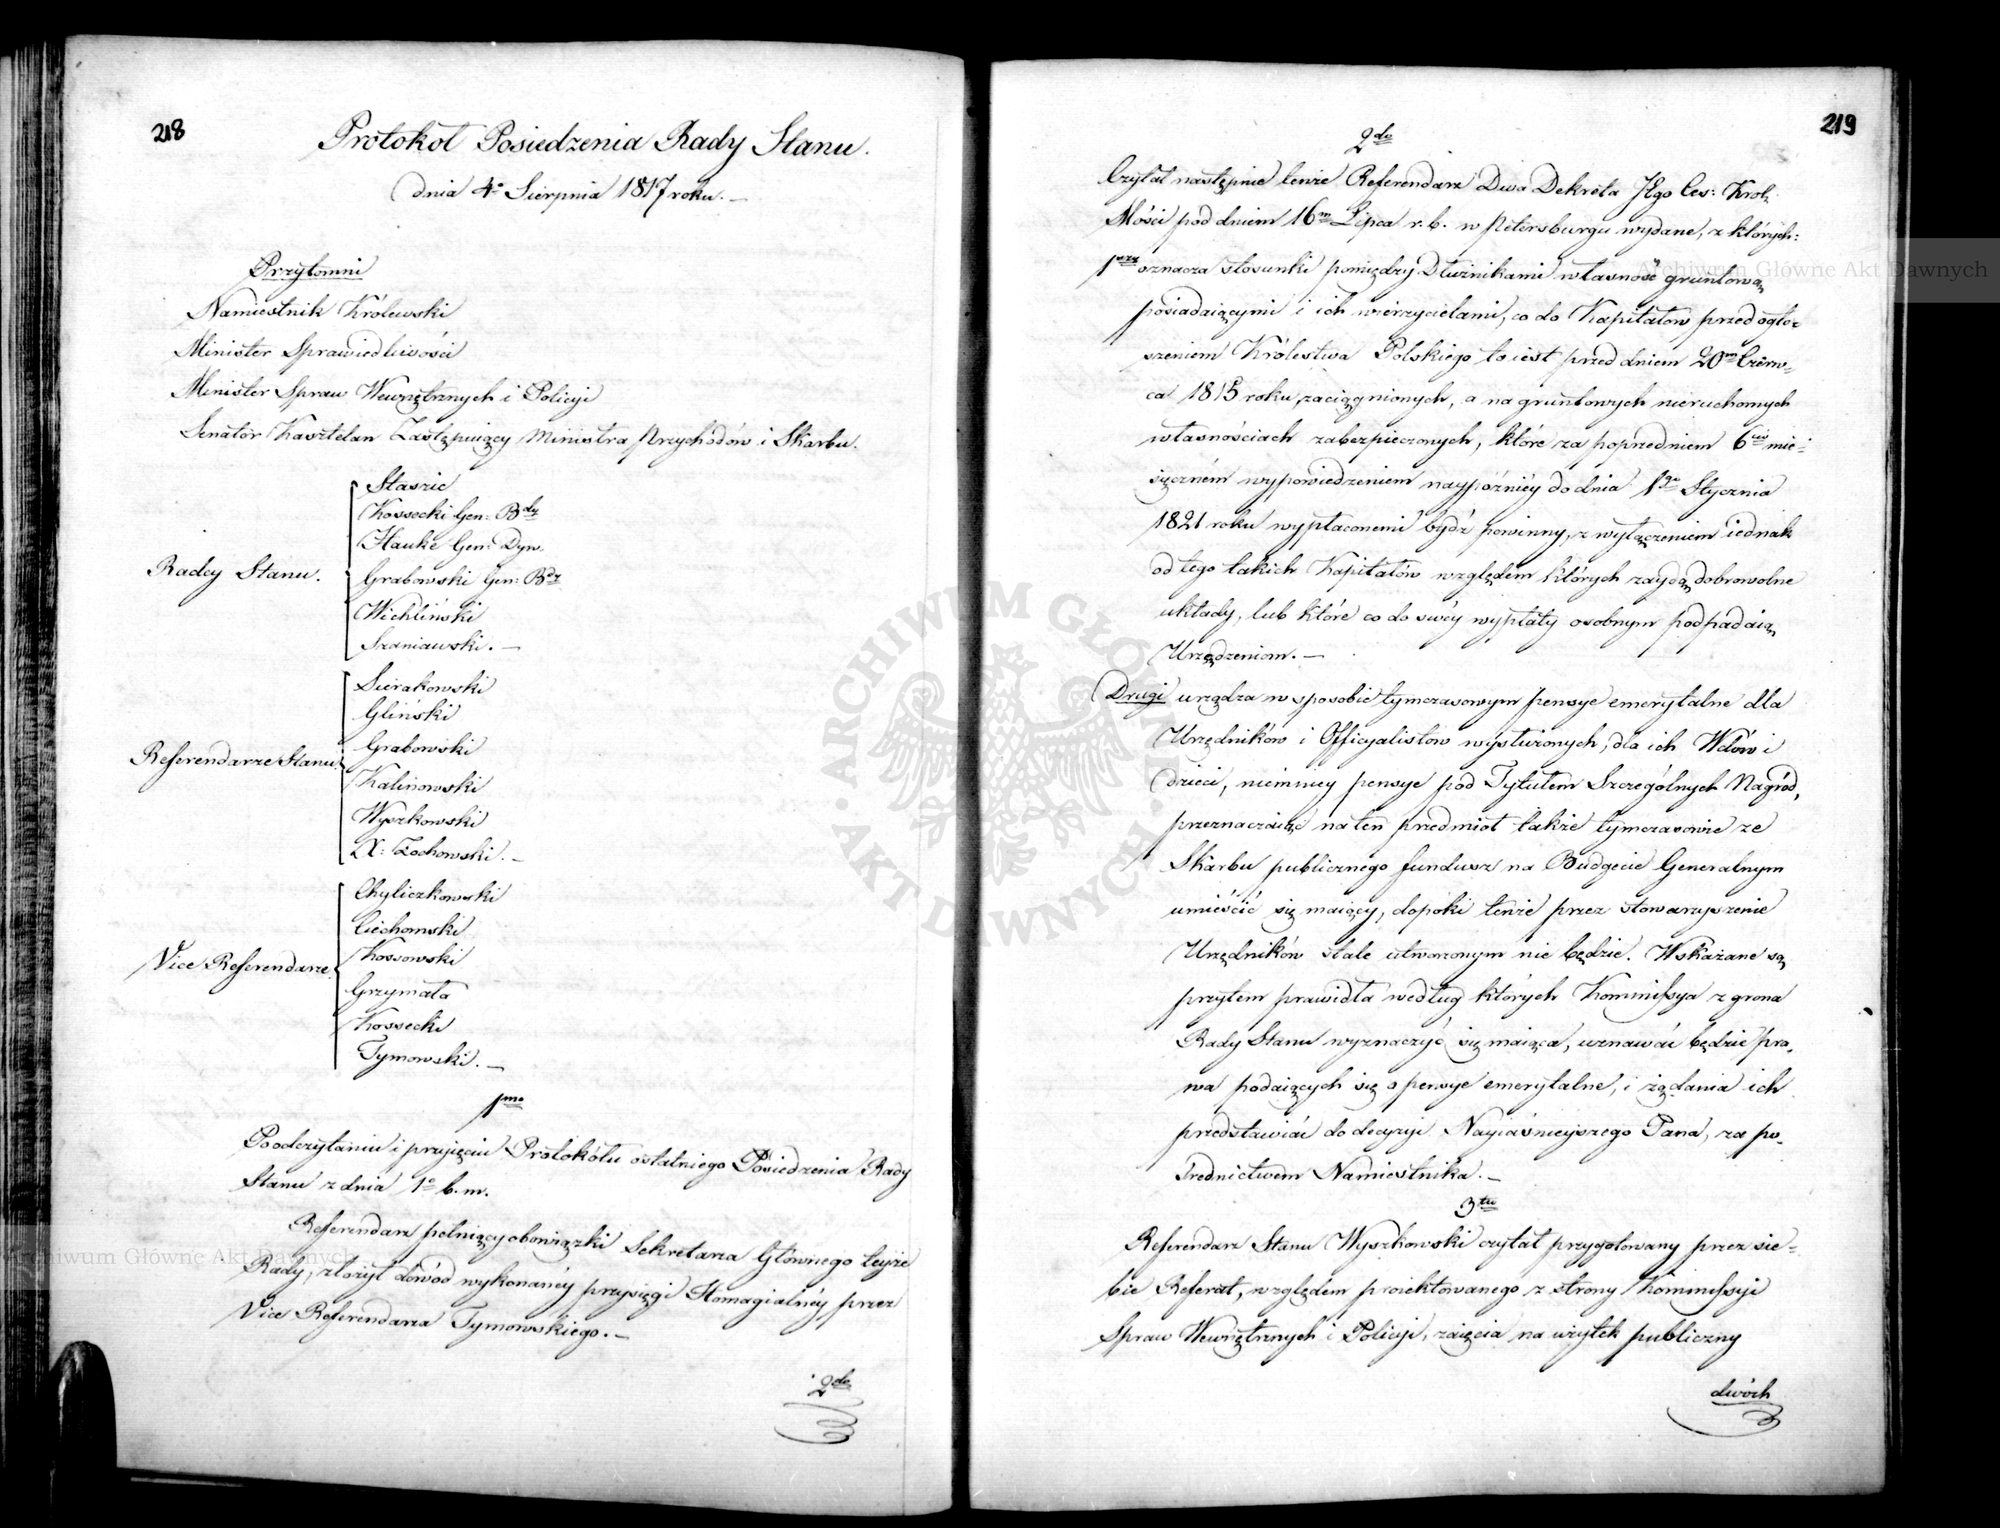 218
Protokół Posiedzenia Rady Stanu.
dnia 4o Sierpnia 1817 roku. —
Przytomni
Namiestnik Królewski
Minister Sprawiedliwości
Minister Spraw Wewnętrznych i Policyi
Senator Kasztelan Zastępuiący Ministra Przychodów i Skarbu.
Radcy Stanu.
Staszic
Kossecki Gen: Bdy
Hauke Gen: Dyw.
Grabowski Gen: Bdy
Wichliński
Szaniawski. —
Referendarze Stanu
Sierakowski
Gliński
Grabowski
Kalinowski
Wyszkowski
X: Żochowski. —
Vice Referendarze
Chyliczkowski
Ciechomski
Kossowski
Grzymała
Kossecki
Tymowski. —
1mo
Po odczytaniu i przyięciu Protokółu ostatniego Posiedzenia Rady
Stanu z dnia 1o b. m.
Referendarz pełniący obowiązki Sekretarza Głównego teyże
Rady, złożył dowód wykonanéy przysięgi Homagialnéy przez
Vice Referendarza Tymowskiego. —
2do
219
2do
Czytał następnie tenże Referendarz Dwa Dekreta JEgo Ces: Król:
Mości pod dniem 16m Lipca r. b. w Petersburgu wydane, z których:
1wszy oznacza stosunki pomiędzy Dłużnikami własność gruntową
posiadaiącymi i ich wierzycielami, co do Kapitałów przed ogło-
szeniem Królestwa Polskiego to iest przed dniem 20m Czerw-
ca 1815 roku, zaciągnionych, a na gruntowych nieruchomych
własnościach zabezpieczonych, które za poprzedniem 6cio mie-
sięczném wypowiedzeniem naypóźniéy do dnia 1go Stycznia
1821 roku wypłaconemi bydź powinny, z wyłączeniem iednak
od tego takich Kapitałów względem których zaydą dobrowolne
układy, lub które co do swéy wypłaty osobnym podpadaią
Urządzeniom. —
Drugi urządza w sposobie tymczasowym pensye emerytalne dla
Urzędników i Officyalistów wysłużonych, dla ich Wdów i
dzieci, niemniey pensye pod Tytułem Szczególnych Nagród,
przeznaczaiąc na ten przedmiot także tymczasowie ze
Skarbu publicznego fundusz na Budgecie Generalnym
umieścić się maiący, dopóki tenże przez stowarzyszenie
Urzędników stale utworzonym nie będzie. Wskazane są
przytem prawidła według których Kommissya z grona
Rady Stanu wyznaczyć się maiąca, uznawać będzie pra-
wa podaiących się o pensye emerytalne, i żądania ich
przedstawiać do decyzyi Nayiaśnieyszego Pana, za po-
średnictwem Namiestnika. —
3tio
Referendarz Stanu Wyszkowski czytał przygotowany przez sie-
bie Referat, względem proiektowanego z strony Kommissyi
Spraw Wewnętrznych i Policyi, zaięcia na użytek publiczny
dwóch
ARCHIWUM GŁÓWNE AKT DAWNYCH
Archiwum Główne Akt Dawnych
Archiwum Główne Akt Dawnych